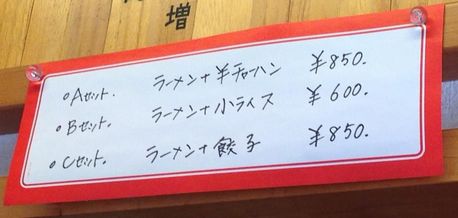 増
。Aセット. ラーメン+半チャーハン ¥850.
。Bセット. ラーメン+小ライス ¥600.
。Cセット. ラーメン+餃子 ¥850.